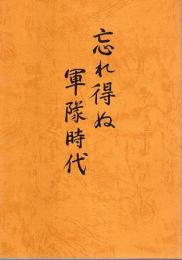 忘れ得ぬ
軍隊時代